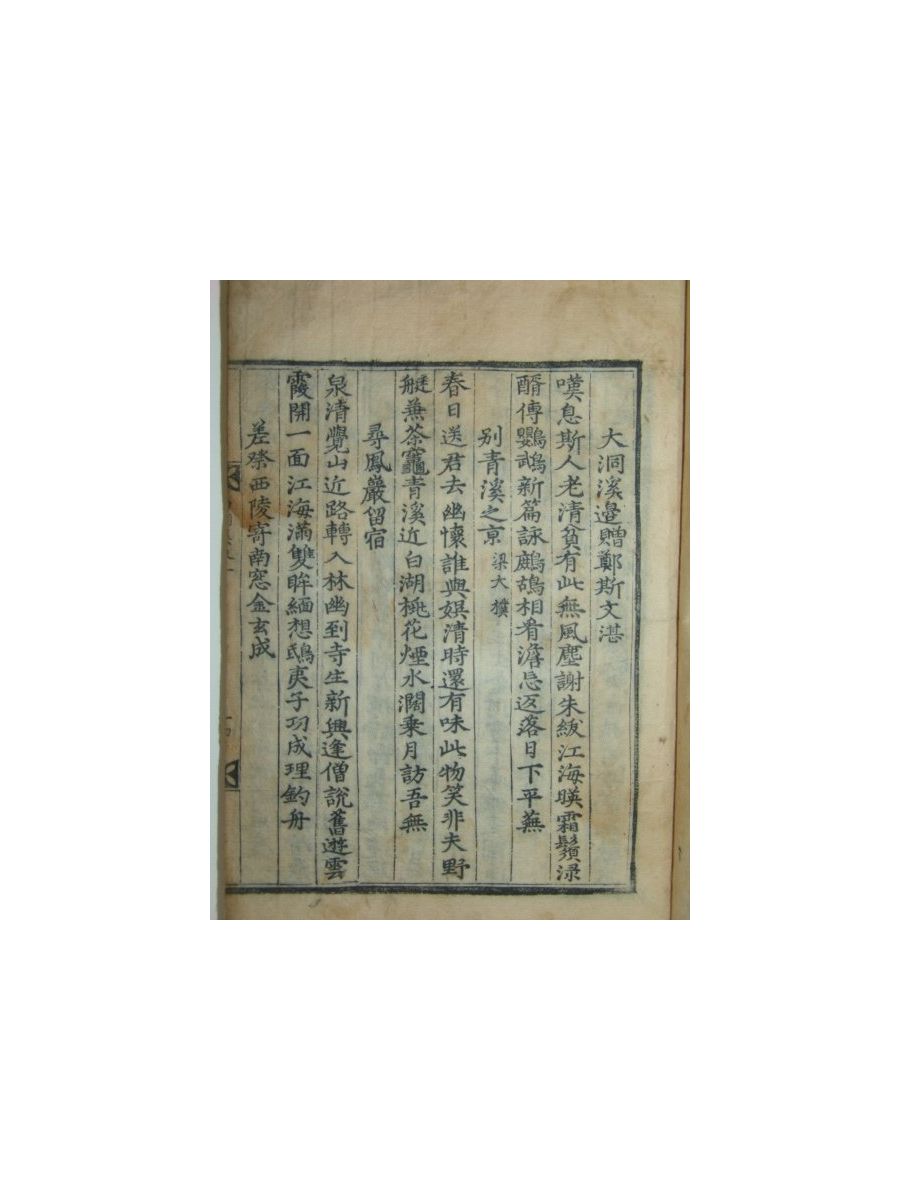 大洞溪邉贈鄭斯文湛
嘆息斯人老清貧有此無風塵謝朱紱江海暎霜鬚渌
醑傳鸚鵡新篇詠鷓鴣相看澹忘返落日下平蕪
别青溪之京 梁大樸
春日送君去幽懷誰與娯清時還有味此物笑非夫野
艇兼茶竈青溪近白湖桃花煙水濶乗月訪吾無
尋鳳巖留宿
泉清覺山近路轉入林幽到寺生新興逢僧說舊遊雲
霞開一面江海滿雙眸緬想鴟夷子功成理釣舟
差祭西陵寄南窓金玄成